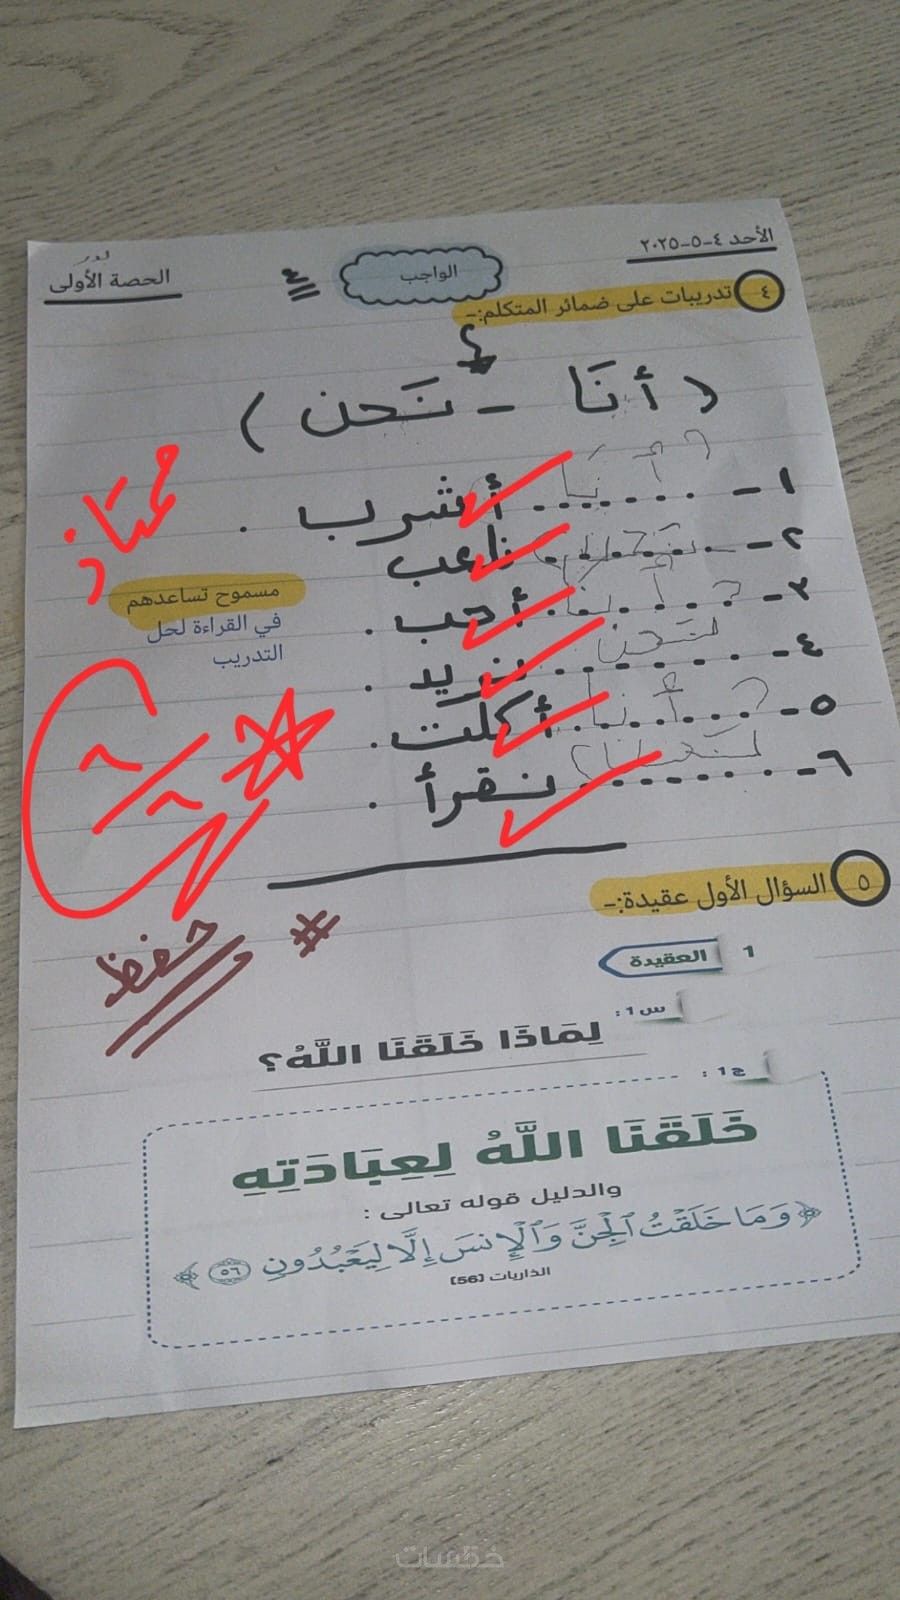 الأحد ٤-٥-٢٠٢٥
الواجب
الحصة الأولى
٤ تدريبات على ضمائر المتكلم:-
( أنَا - نَحن )
١- (أنَا) أشرب .
٢- نلعب
٣- أنا أحب .
٤- نَحن نريد .
٥- أنا أكلت .
٦- نقرأ .
ممتاز
مسموح تساعدهم
في القراءة لحل
التدريب
٥ السؤال الأول عقيدة:-
# حفظ
1 العقيدة
س1:
لِمَاذَا خَلَقَنَا اللَّهُ؟
ج1:
خَلَقَنَا اللَّهُ لِعِبَادَتِهِ
والدليل قوله تعالى :
﴿وَمَا خَلَقْتُ ٱلْجِنَّ وَٱلْإِنسَ إِلَّا لِيَعْبُدُونِ ٥٦﴾
الذاريات (56)
خمسات